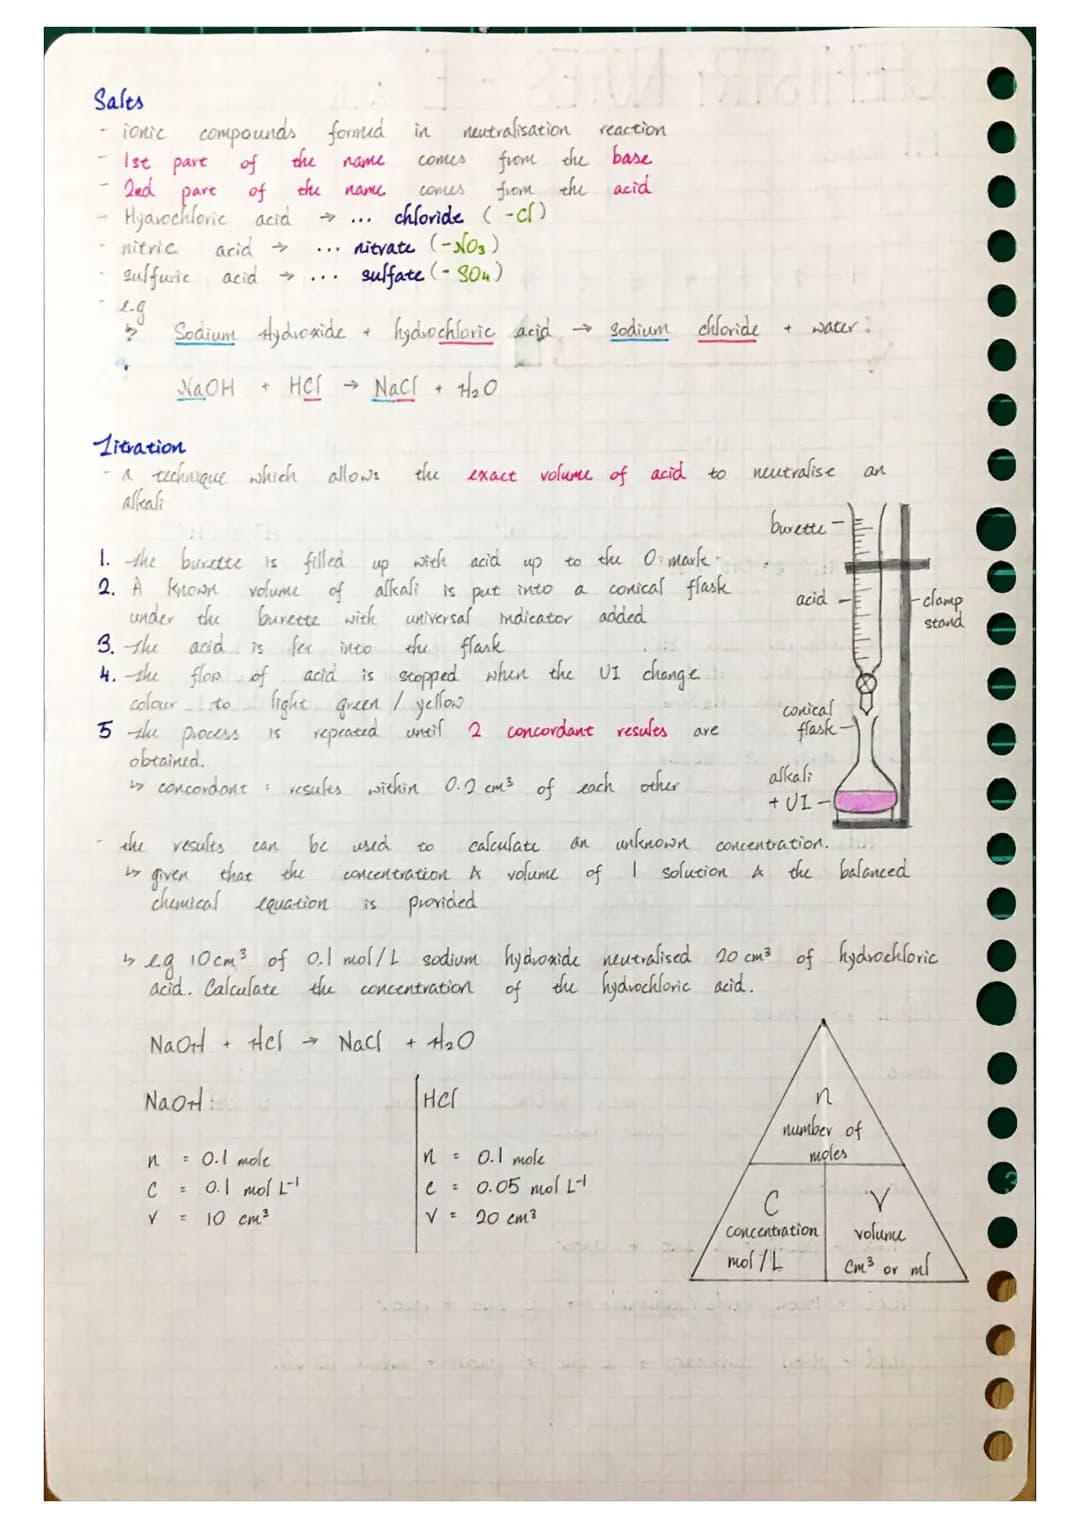 Salts
- ionic compounds formed in neutralisation reaction
- 1st part of the name comes from the base
- 2nd part of the name comes from the acid
- Hydrochloric acid → ... chloride (-Cl)
- nitric acid → ... nitrate (-NO3)
- sulfuric acid → ... sulfate (-SO4)
- e.g
↳ Sodium Hydroxide + hydrochloric acid → sodium chloride + water
NaOH + HCl → NaCl + H2O
Titration
- a technique which allows the exact volume of acid to neutralise an
alkali
1. the burette is filled up with acid up to the 0 mark
2. A known volume of alkali is put into a conical flask
under the burette with universal indicator added
3. the acid is let into the flask
4. the flow of acid is stopped when the UI change
colour to light green / yellow
5 the process is repeated until 2 concordant results are
obtained.
↳ concordant : results within 0.2 cm³ of each other
burette
acid
clamp
stand
conical
flask
alkali
+ UI
- the results can be used to calculate an unknown concentration.
↳ given that the concentration & volume of 1 solution & the balanced
chemical equation is provided
↳ e.g 10cm³ of 0.1 mol/L sodium hydroxide neutralised 20 cm³ of hydrochloric
acid. Calculate the concentration of the hydrochloric acid.
NaOH + HCl → NaCl + H2O
NaOH:
n = 0.1 mole
C = 0.1 mol L⁻¹
V = 10 cm³
HCl
n = 0.1 mole
c = 0.05 mol L⁻¹
V = 20 cm³
n
number of
moles
C
concentration
mol/L
V
volume
cm³ or ml